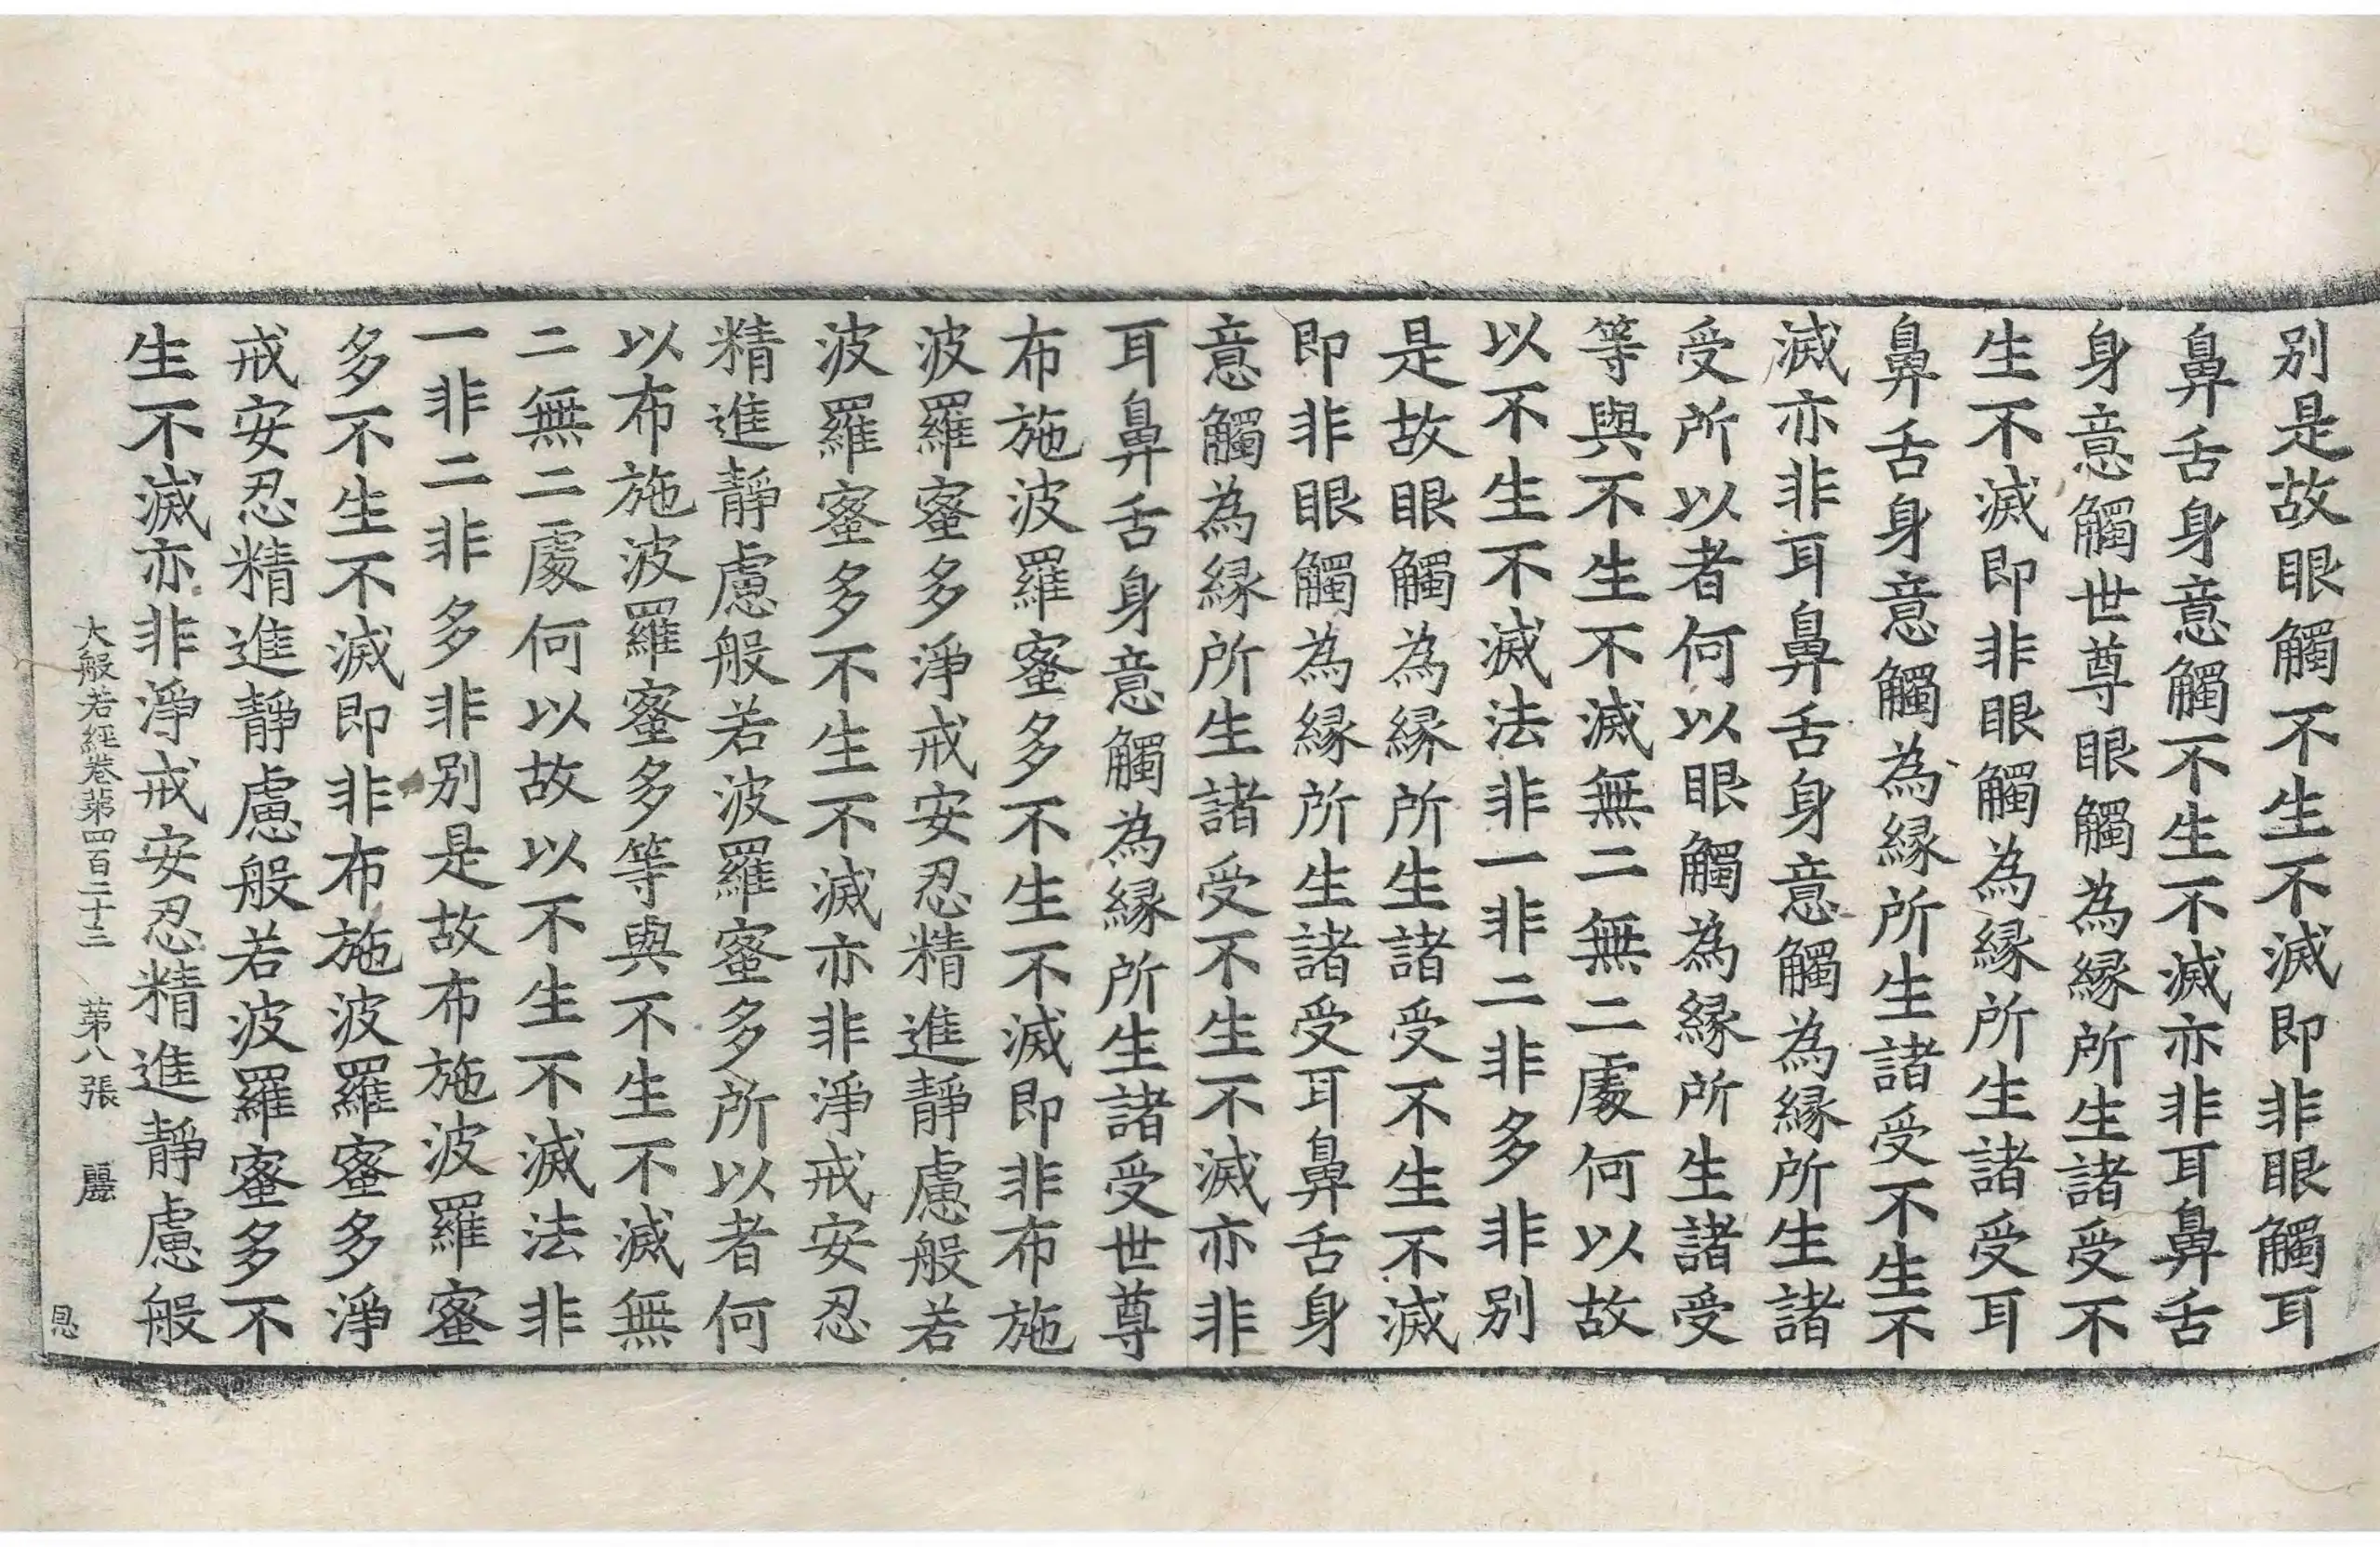 別是故眼觸不生不滅即非眼觸耳
鼻舌身意觸不生不滅亦非耳鼻舌
身意觸世尊眼觸為緣所生諸受不
生不滅即非眼觸為緣所生諸受耳
鼻舌身意觸為緣所生諸受不生不
滅亦非耳鼻舌身意觸為緣所生諸
受所以者何以眼觸為緣所生諸受
等與不生不滅無二無二處何以故
以不生不滅法非一非二非多非別
是故眼觸為緣所生諸受不生不滅
即非眼觸為緣所生諸受耳鼻舌身
意觸為緣所生諸受不生不滅亦非
耳鼻舌身意觸為緣所生諸受世尊
布施波羅蜜多不生不滅即非布施
波羅蜜多淨戒安忍精進靜慮般若
波羅蜜多不生不滅亦非淨戒安忍
精進靜慮般若波羅蜜多所以者何
以布施波羅蜜多等與不生不滅無
二無二處何以故以不生不滅法非
一非二非多非別是故布施波羅蜜
多不生不滅即非布施波羅蜜多淨
戒安忍精進靜慮般若波羅蜜多不
生不滅亦非淨戒安忍精進靜慮般
大般若經卷第四百二十三 第八張 麗